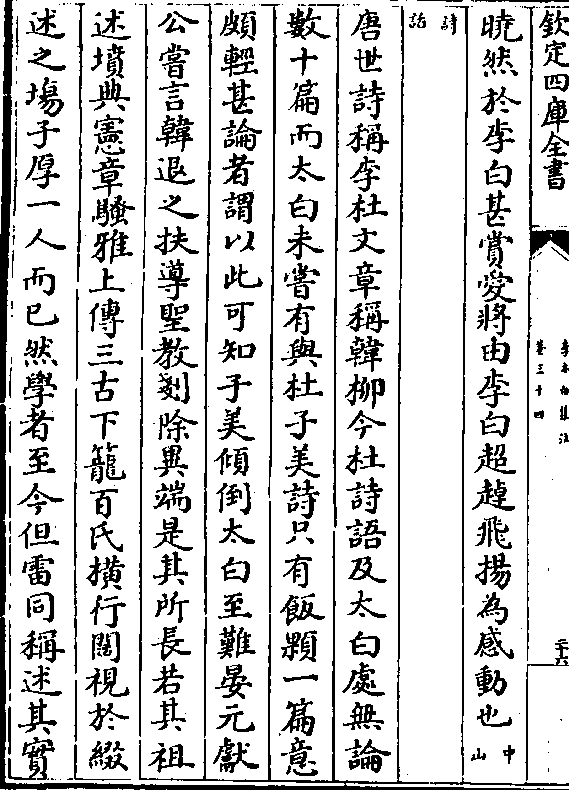 欽定四庫全書
李太白集注
卷三十四
三十六
曉然於李白甚賞愛將由李白超踔飛揚為感動也中山
詩話
唐世詩稱李杜文章稱韓柳今杜詩語及太白處無論
數十篇而太白未嘗有與杜子美詩只有飯顆一篇意
頗輕甚論者謂以此可知子美傾倒太白至難晏元獻
公嘗言韓退之扶導聖教剗除異端是其所長若其祖
述墳典憲章騷雅上傳三古下籠百氏横行闊視於綴
述之塲子厚一人而已然學者至今但雷同稱述其實